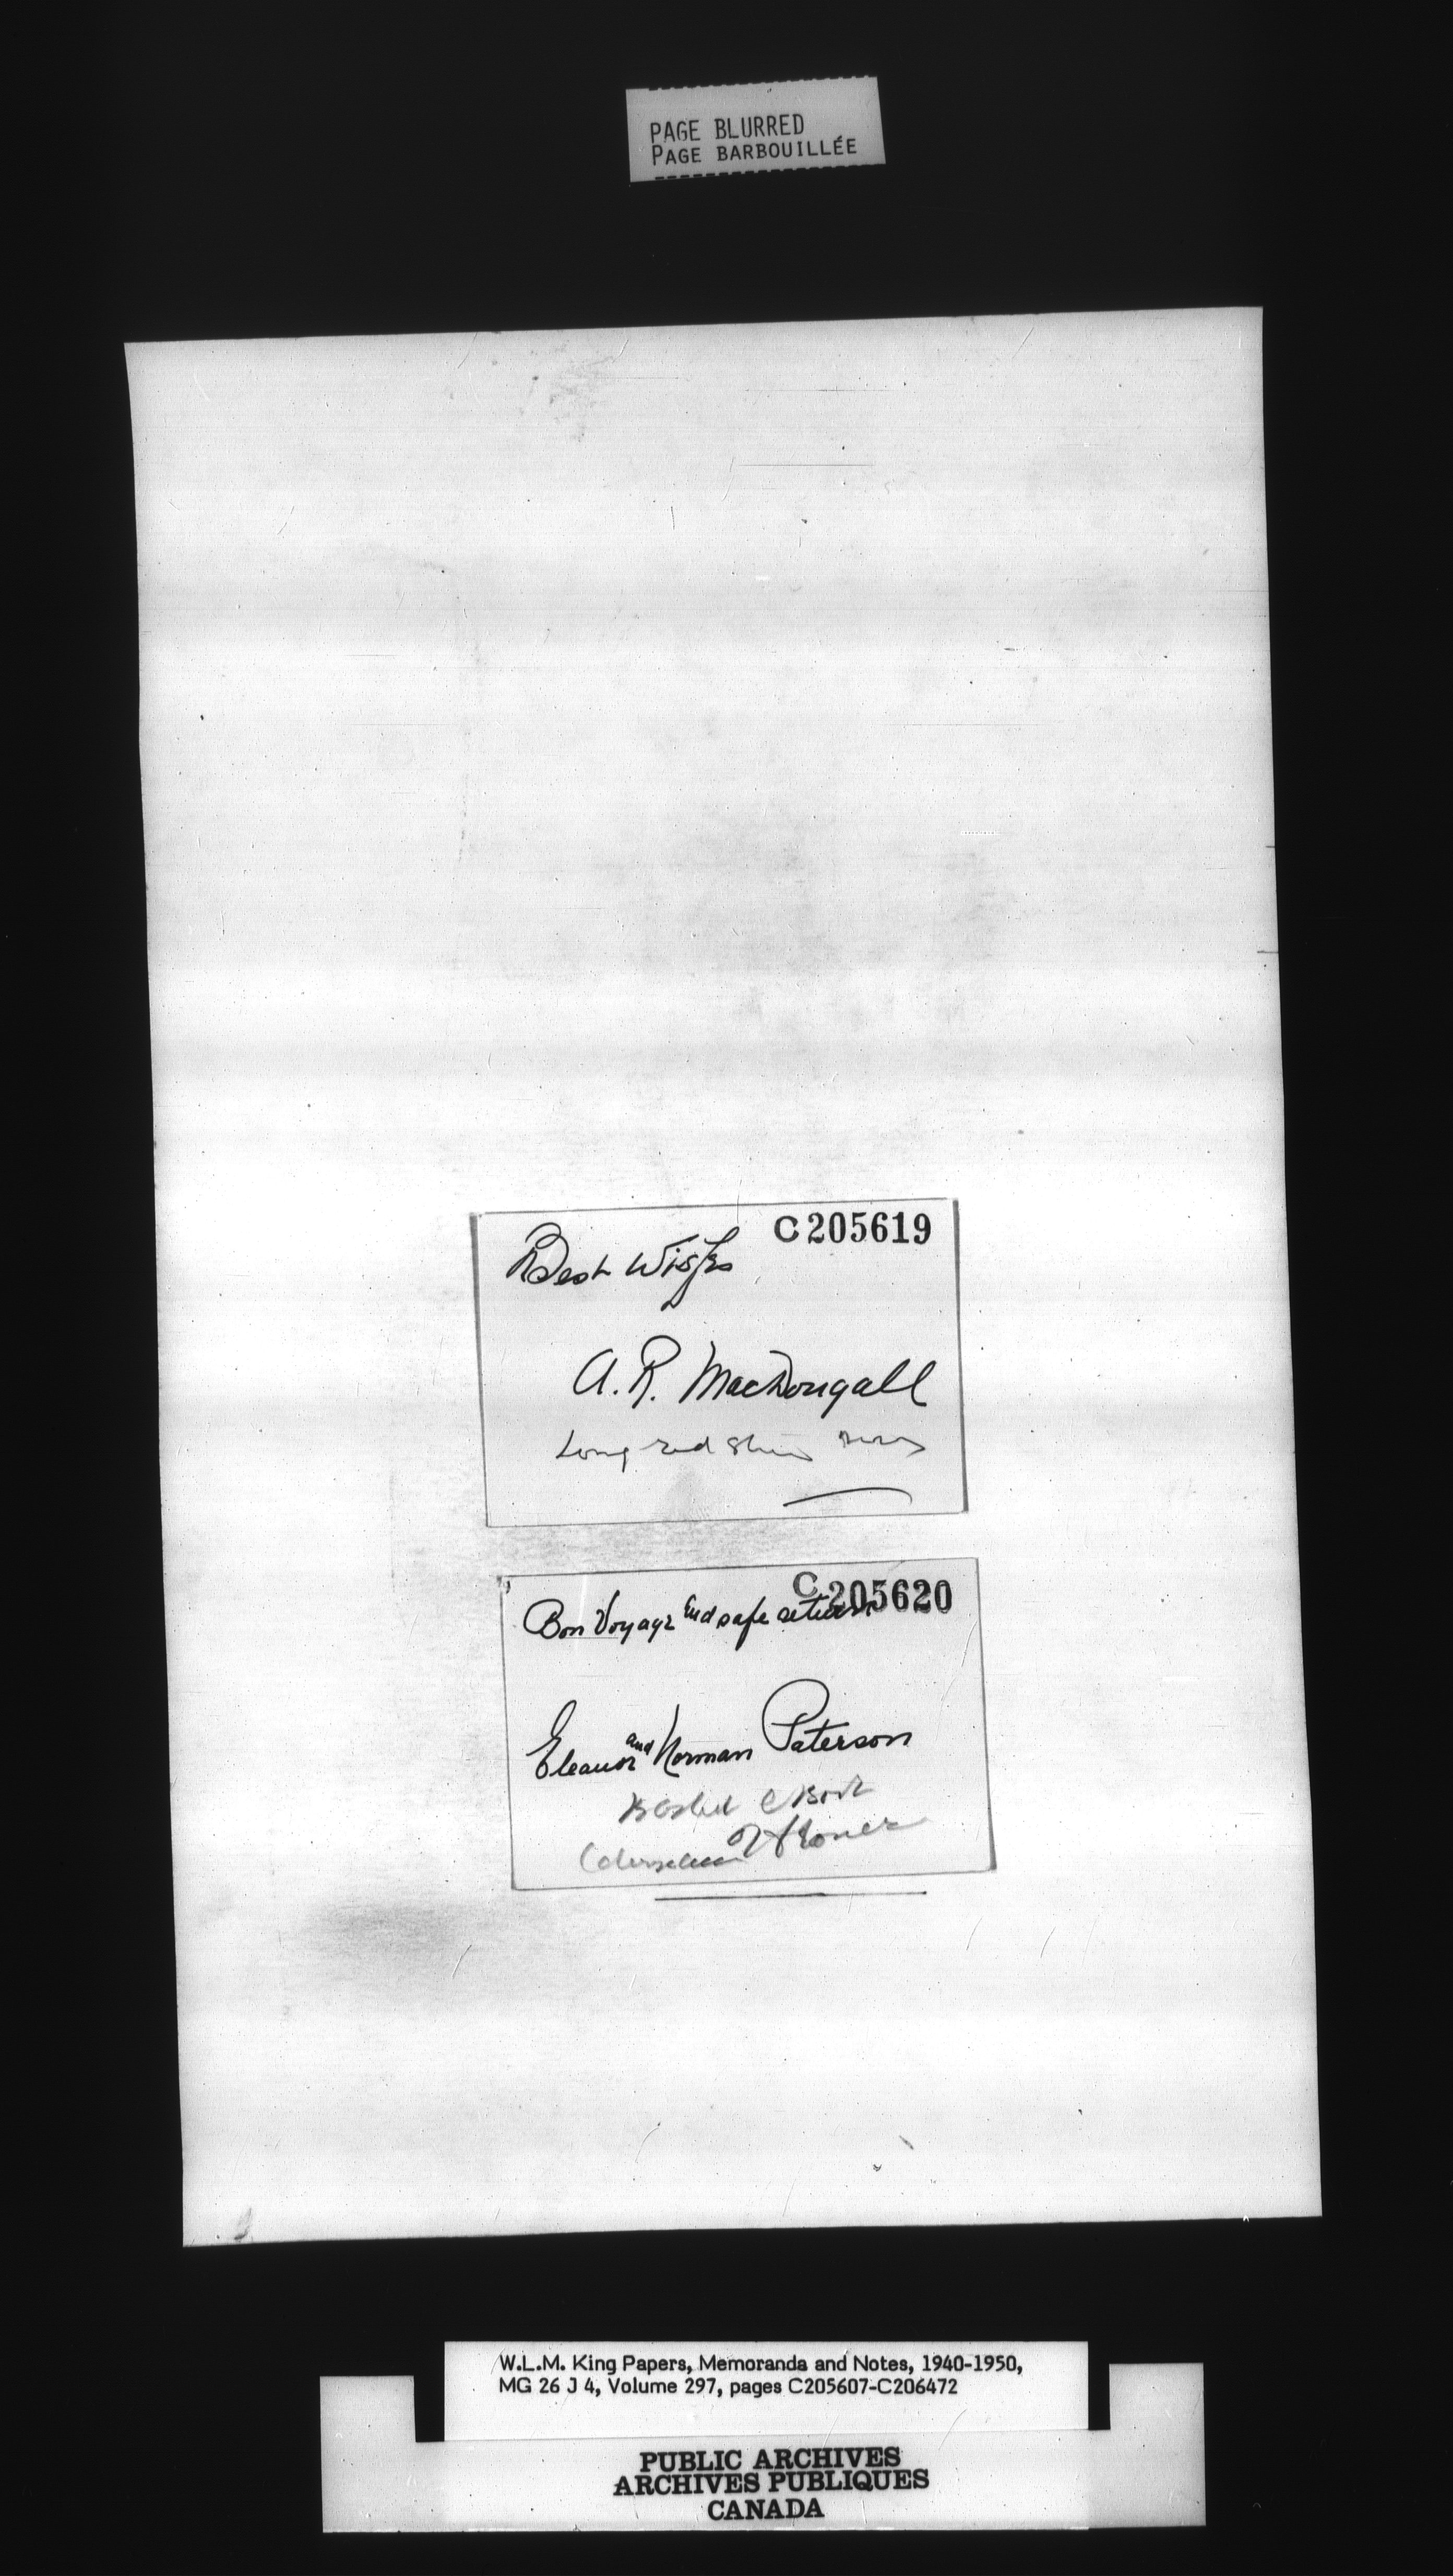 PAGE BLURRED
PAGE BARBOUILLÉE
C205619
Best Wishes
A. R. MacDougall
Long red
C205620
Bon Voyage and safe return
Eleanor and Norman Paterson
of
W.L.M. King Papers, Memoranda and Notes, 1940-1950,
MG 26 J 4, Volume 297, pages C205607-C206472
PUBLIC ARCHIVES
ARCHIVES PUBLIQUES
CANADA